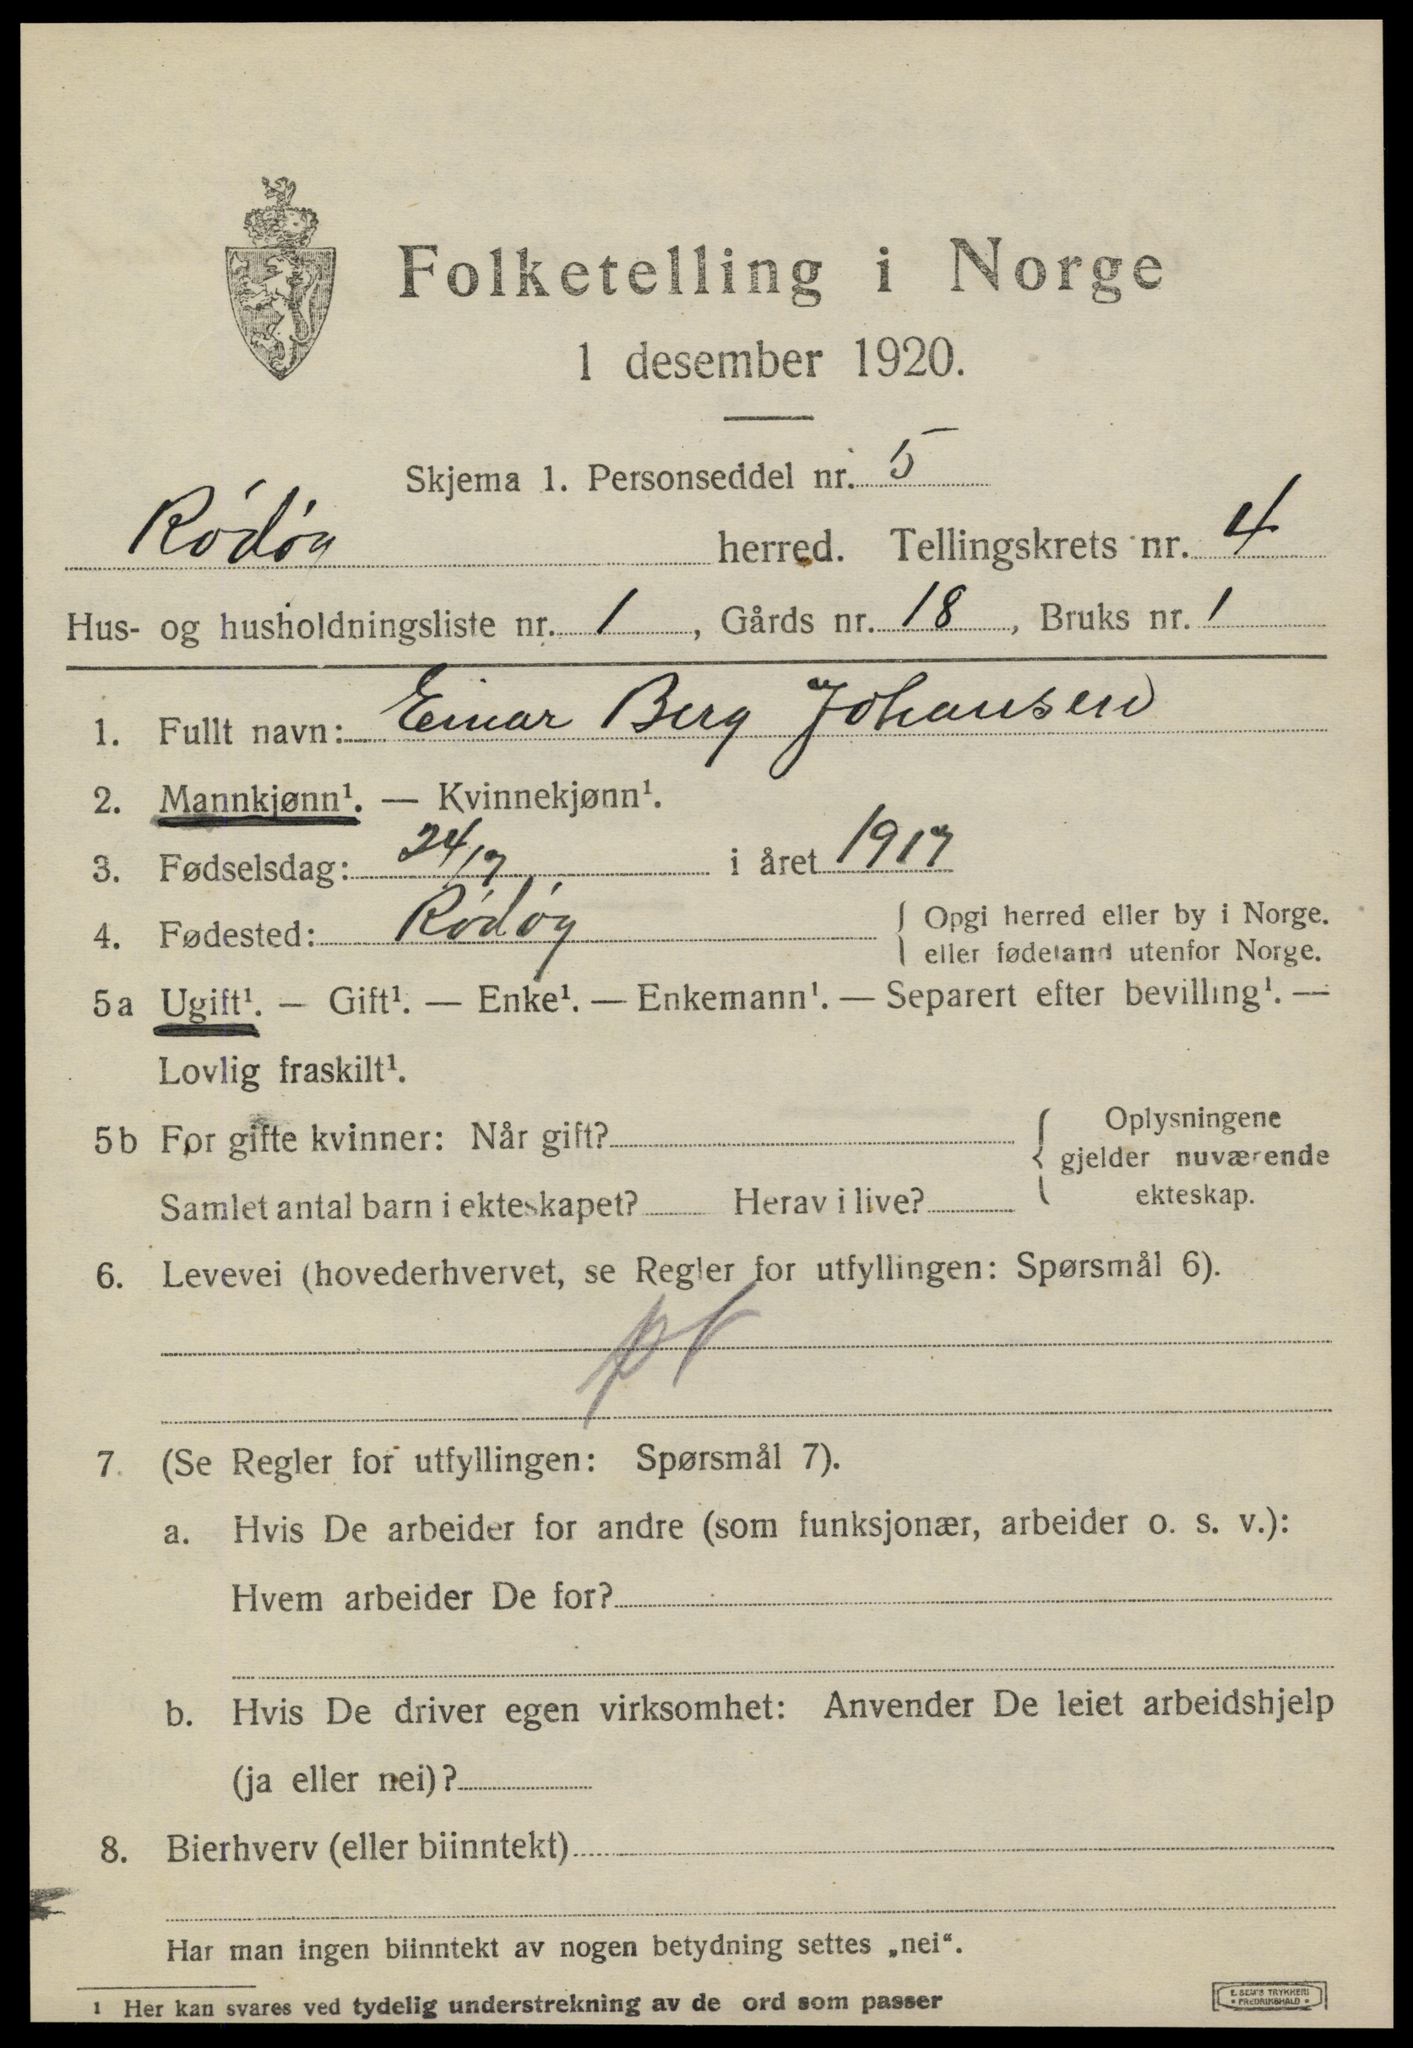 Folketelling i Norge
1 desember 1920.
Skjema 1. Personseddel nr. 5
Rødøy herred. Tellingskrets nr. 4
Hus- og husholdningsliste nr. 1, Gårds nr. 18, Bruks nr. 1
1. Fullt navn: Einar Berg Johansen
2. Mannkjønn¹. — Kvinnekjønn¹.
3. Fødselsdag: 24/7 i året 1917
4. Fødested: Rødøy { Opgi herred eller by i Norge.
eller fødeland utenfor Norge.
5a Ugift¹. — Gift¹. — Enke¹. — Enkemann¹. — Separert efter bevilling¹. —
Lovlig fraskilt¹.
5b For gifte kvinner: Når gift? { Oplysningene
gjelder nuværende
ekteskap.
Samlet antal barn i ekteskapet? Herav i live?
6. Levevei (hovederhvervet, se Regler for utfyllingen: Spørsmål 6).
7. (Se Regler for utfyllingen: Spørsmål 7).
a. Hvis De arbeider for andre (som funksjonær, arbeider o. s. v.):
Hvem arbeider De for?
b. Hvis De driver egen virksomhet: Anvender De leiet arbeidshjelp
(ja eller nei)?
8. Bierhverv (eller biinntekt)
Har man ingen biinntekt av nogen betydning settes „nei“.
1 Her kan svares ved tydelig understrekning av de ord som passer
E. SEM'S TRYKKERI
FREDRIKSHALD